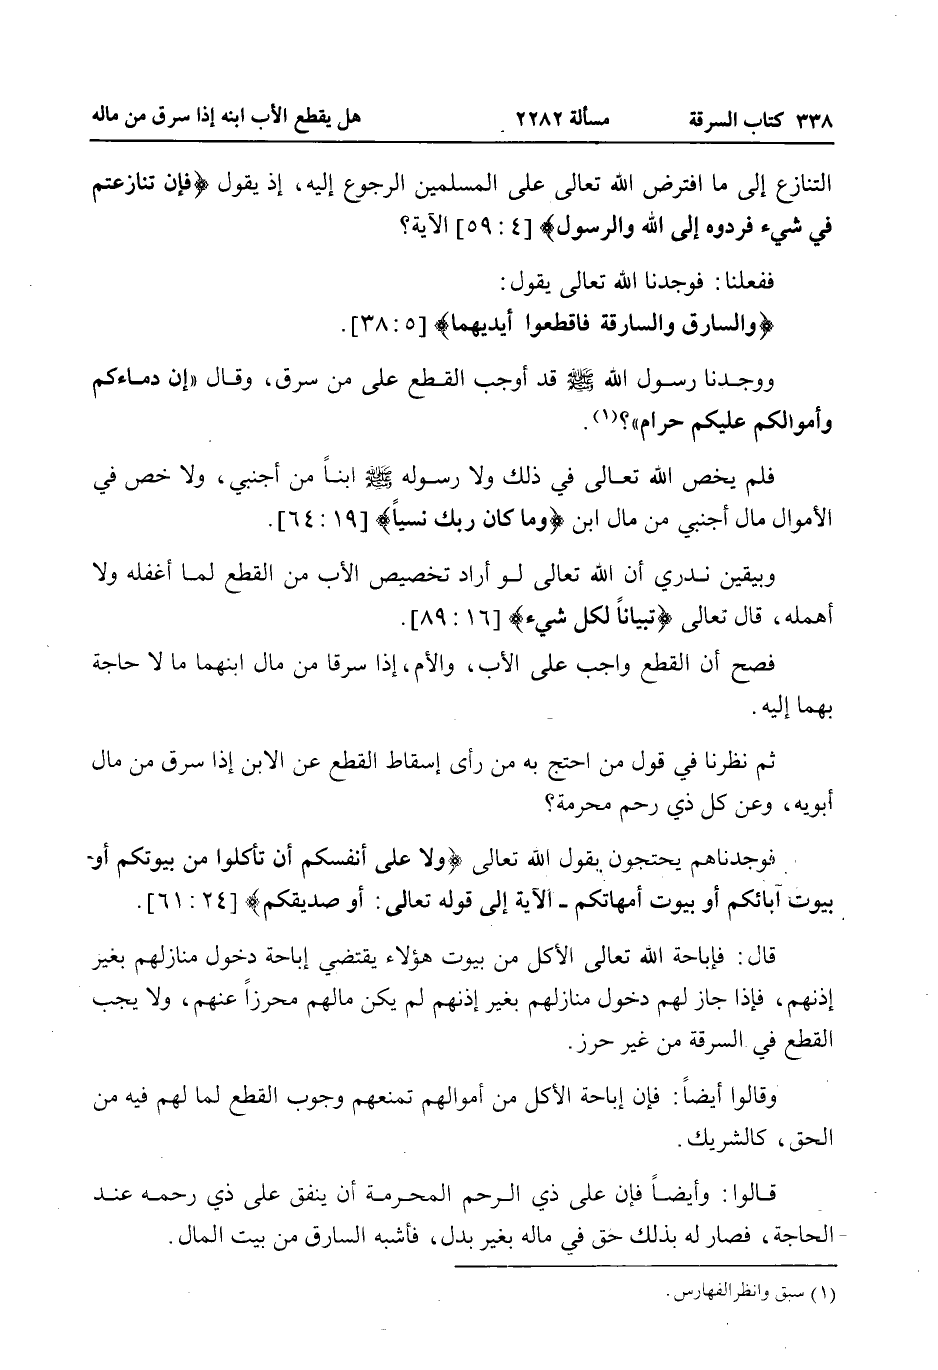 ٣٣٨ كتاب السرقة مسألة ٢٢٨٢ هل يقطع الأب ابنه إذا سرق من ماله
التنازع إلى ما افترض الله تعالى على المسلمين الرجوع إليه، إذ يقول ﴿فإن تنازعتم
في شيء فردوه إلى الله والرسول﴾ [٤ : ٥٩] الآية؟
ففعلنا: فوجدنا الله تعالى يقول:
﴿والسارق والسارقة فاقطعوا أيديهما﴾ [٥ : ٣٨].
ووجدنا رسول الله ﷺ قد أوجب القطع على من سرق، وقال «إن دماءكم
وأموالكم عليكم حرام»؟(١).
فلم يخص الله تعالى في ذلك ولا رسوله ﷺ ابناً من أجنبي، ولا خص في
الأموال مال أجنبي من مال ابن ﴿وما كان ربك نسياً﴾ [١٩ : ٦٤].
وبيقين ندري أن الله تعالى لو أراد تخصيص الأب من القطع لما أغفله ولا
أهمله، قال تعالى ﴿تبياناً لكل شيء﴾ [١٦ : ٨٩].
فصح أن القطع واجب على الأب، والأم، إذا سرقا من مال ابنهما ما لا حاجة
بهما إليه.
ثم نظرنا في قول من احتج به من رأى إسقاط القطع عن الابن إذا سرق من مال
أبويه، وعن كل ذي رحم محرمة؟
فوجدناهم يحتجون بقول الله تعالى ﴿ولا على أنفسكم أن تأكلوا من بيوتكم أو
بيوت آبائكم أو بيوت أمهاتكم - الآية إلى قوله تعالى: أو صديقكم﴾ [٢٤ : ٦١].
قال: فإباحة الله تعالى الأكل من بيوت هؤلاء يقتضي إباحة دخول منازلهم بغير
إذنهم، فإذا جاز لهم دخول منازلهم بغير إذنهم لم يكن مالهم محرزاً عنهم، ولا يجب
القطع في السرقة من غير حرز.
وقالوا أيضاً: فإن إباحة الأكل من أموالهم تمنعهم وجوب القطع لما لهم فيه من
الحق، كالشريك.
قالوا: وأيضاً فإن على ذي الرحم المحرمة أن ينفق على ذي رحمه عند
الحاجة، فصار له بذلك حق في ماله بغير بدل، فأشبه السارق من بيت المال.
(١) سبق وانظر الفهارس.